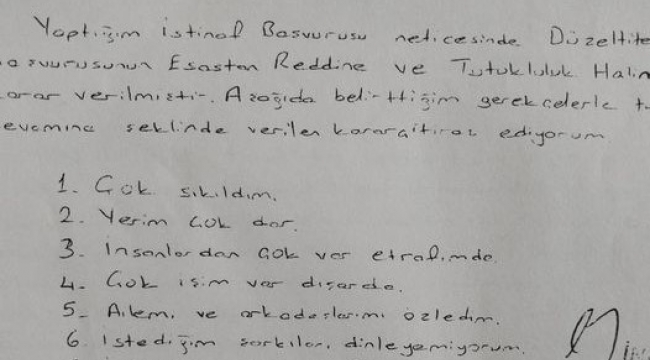 Yaptığım İstinaf Başvurusu neticesinde Düzeltile
aşvurusunun Esastan Reddine ve Tutukluluk Halin
arar verilmiştir. Aşağıda belirttiğim gerekçelerle t
evamına şeklinde verilen karara itiraz ediyorum
1. Çok sıkıldım.
2. Yerim çok dar.
3. İnsanlardan çok var etrafımda.
4. Çok işim var dışarda.
5. Ailemi ve arkadaşlarımı özledim.
6. İstediğim şarkıları dinleyemiyorum.